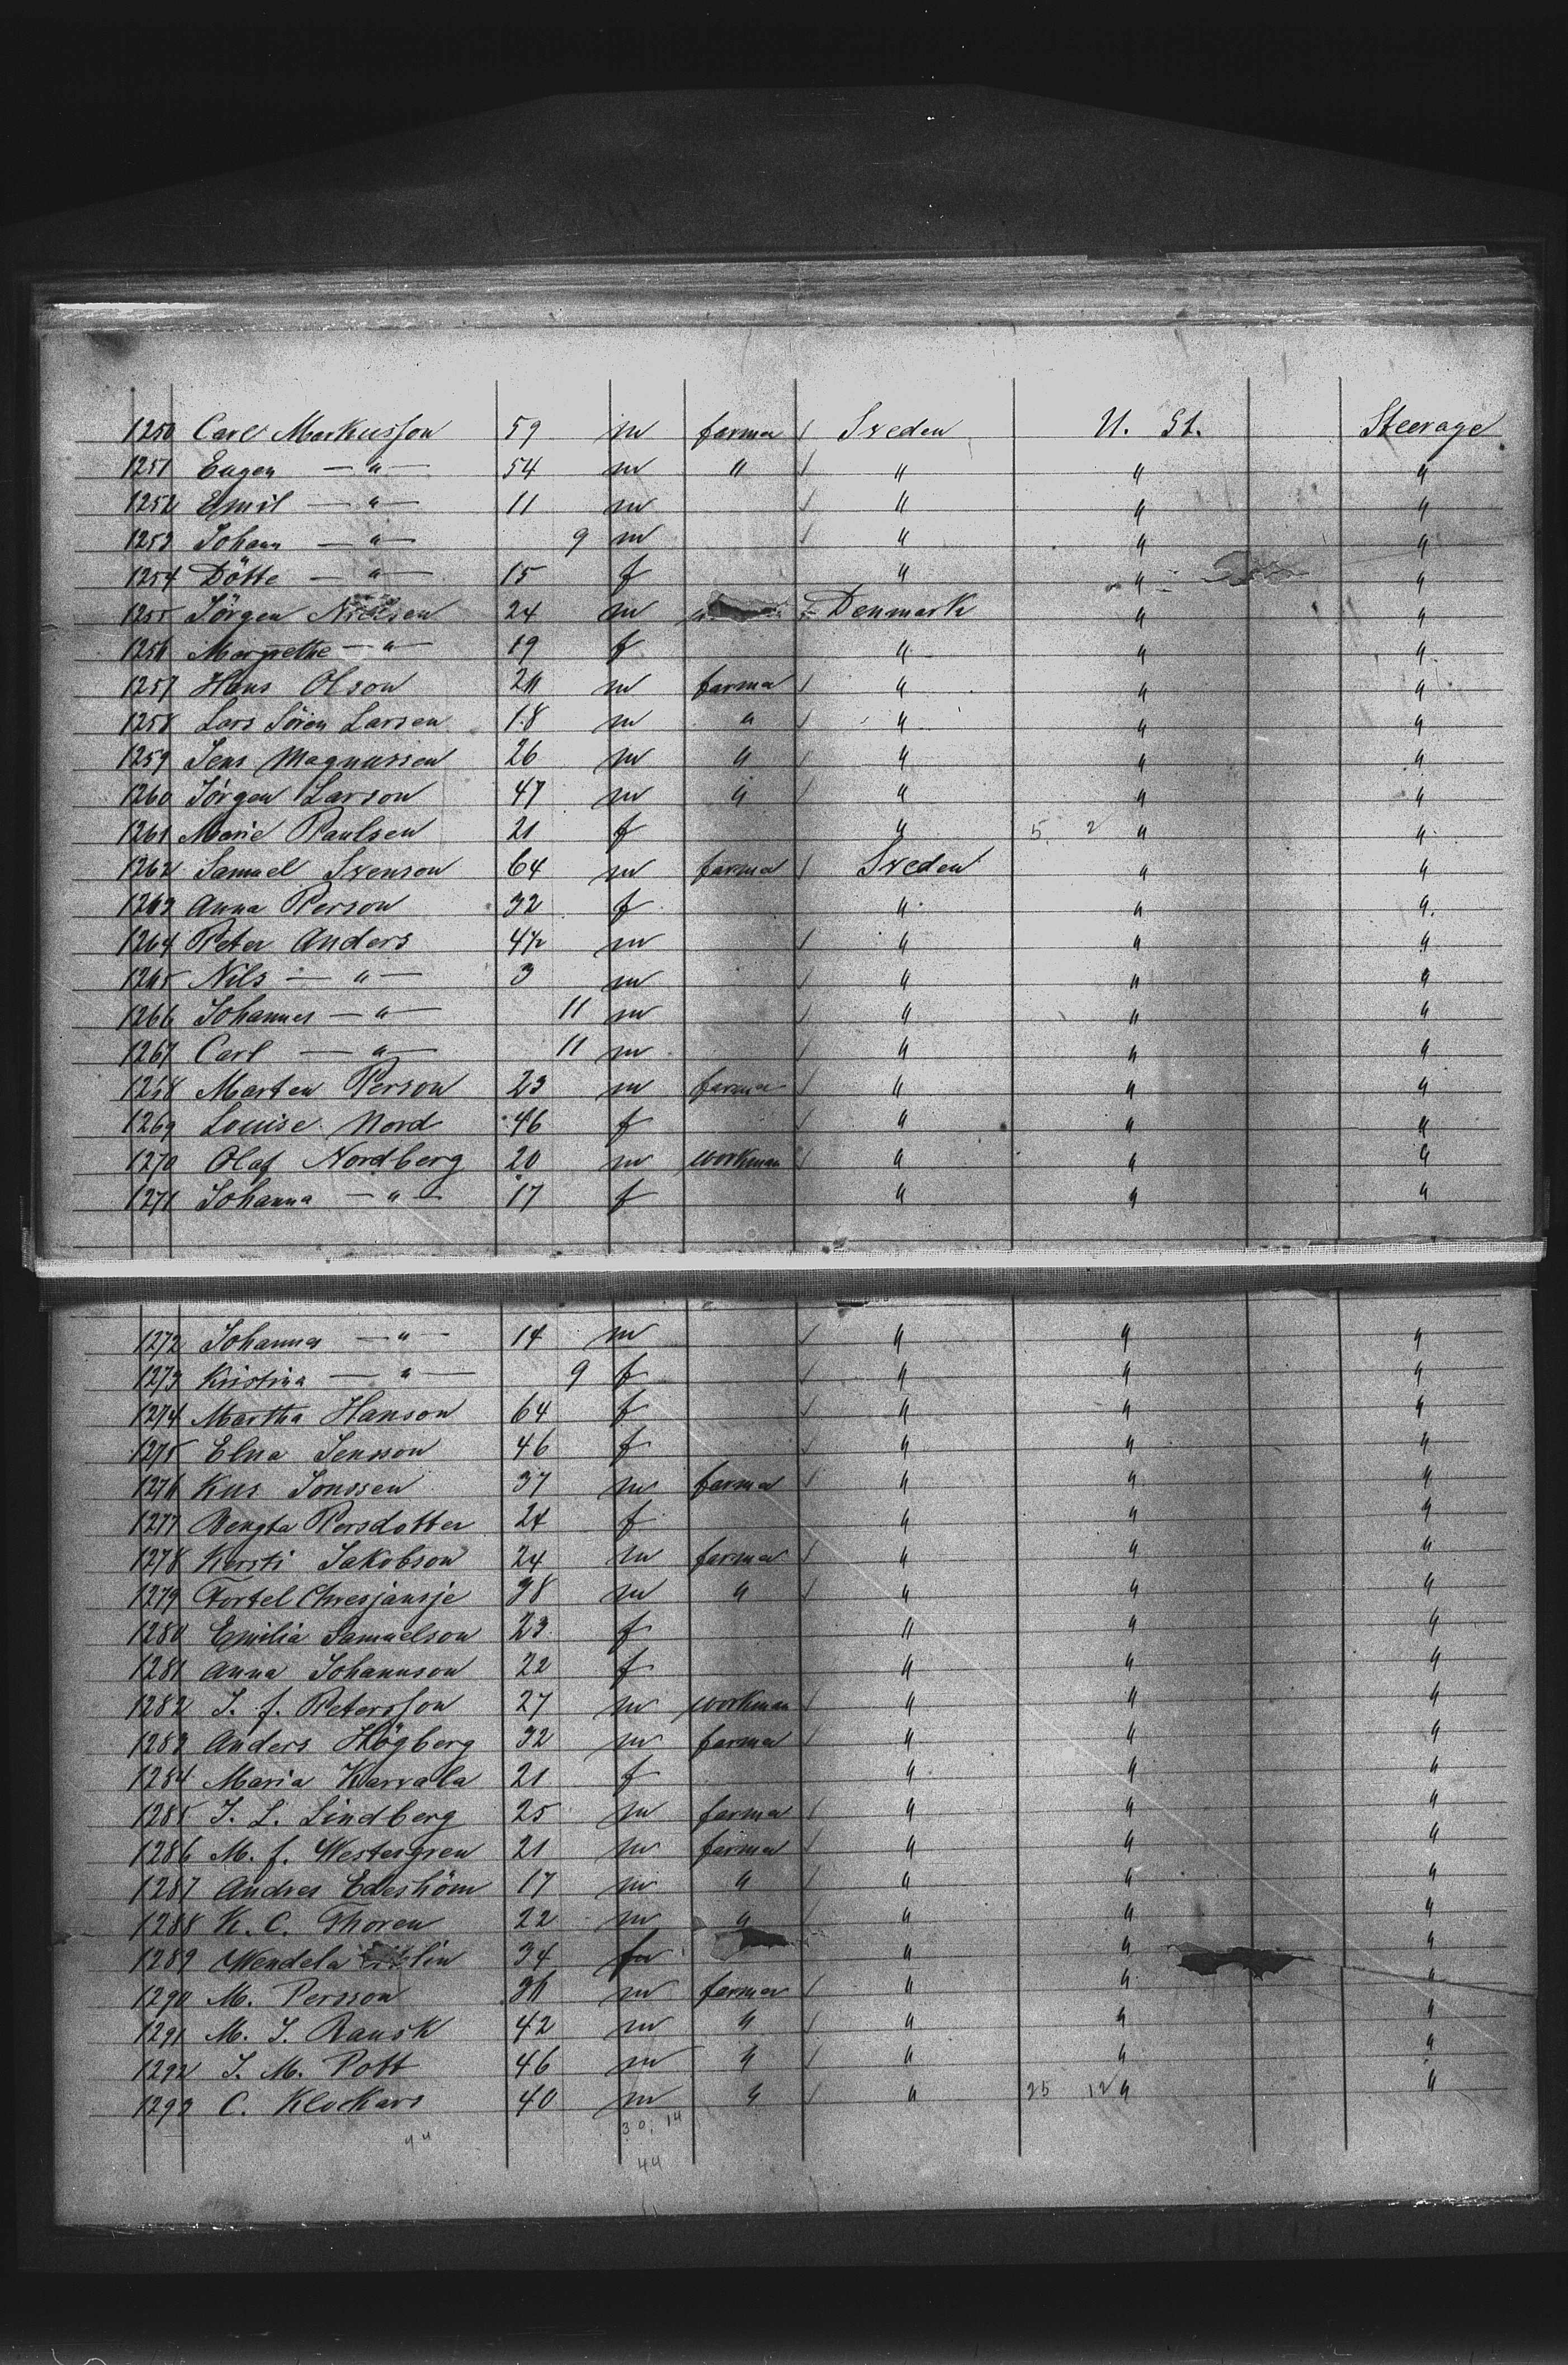 1250 Carl Markusson 59 m farmer / Sveden U. St. Steerage
1251 Eugen — " — 54 m " / " " "
1252 Emil — " — 11 m / " " "
1253 Johann — " — 9 m / " " "
1254 Dötte — " — 15 f " " "
1255 Jörgen Nielsen 24 m Denmark " "
1256 Margrethe — " — 19 f " " "
1257 Hans Olson m farmer / " " "
1258 Lars Sören Larsen 18 m " / " " "
1259 Jens Magnussen 26 m " / " " "
1260 Jörgen Larson 47 m " / " " "
1261 Marie Paulsen 21 f " 5 2 " "
1262 Samuel Svenson 64 m farmer / Sveden " "
1263 Anna Person 32 f " " "
1264 Peter Anders m / " " "
1265 Nils — " — 3 m / " " "
1266 Johannes — " — 11 m / " " "
1267 Carl — " — 11 m / " " "
1268 Marten Person 23 m farmer / " " "
1269 Louise Nord 46 f / " " "
1270 Olaf Nordberg 20 m workman / " " "
1271 Johanna — " — 17 f " " "
1272 Johannes — " — 14 m / " " "
1273 Kristina — " — 9 f / " " "
1274 Martha Hanson 64 f / " " "
1275 Elna Jensson 46 f / " " "
1276 Kus Jonssen 37 m farmer / " " "
1277 Bengta Persdotter 24 f " " "
1278 Kersti Jakobson 24 m farmer / " " "
1279 Tortel 38 m " / " " "
1280 Emilia Samuelson 23 f " " "
1281 Anna Johannson 22 f " " "
1282 J. f. Petersson 27 m workman / " " "
1283 Anders Högberg 32 m farmer / " " "
1284 Maria Karvala 21 f " " "
1285 J. L. Lindberg 25 m farmer / " " "
1286 M. f. Westergren 21 m farmer / " " "
1287 Andres Edeshöm 17 m " / " " "
1288 K. C. Thoren 22 m " / " " "
1289 Wendela 34 f " " "
1290 M. Persson 36 m farmer / " " "
1291 M. J. Rausk 42 m " / " " "
1292 J. M. Pott 46 m " / " " "
1293 C. Klockars 40 m " / " 25 12 " "
30. 14
44